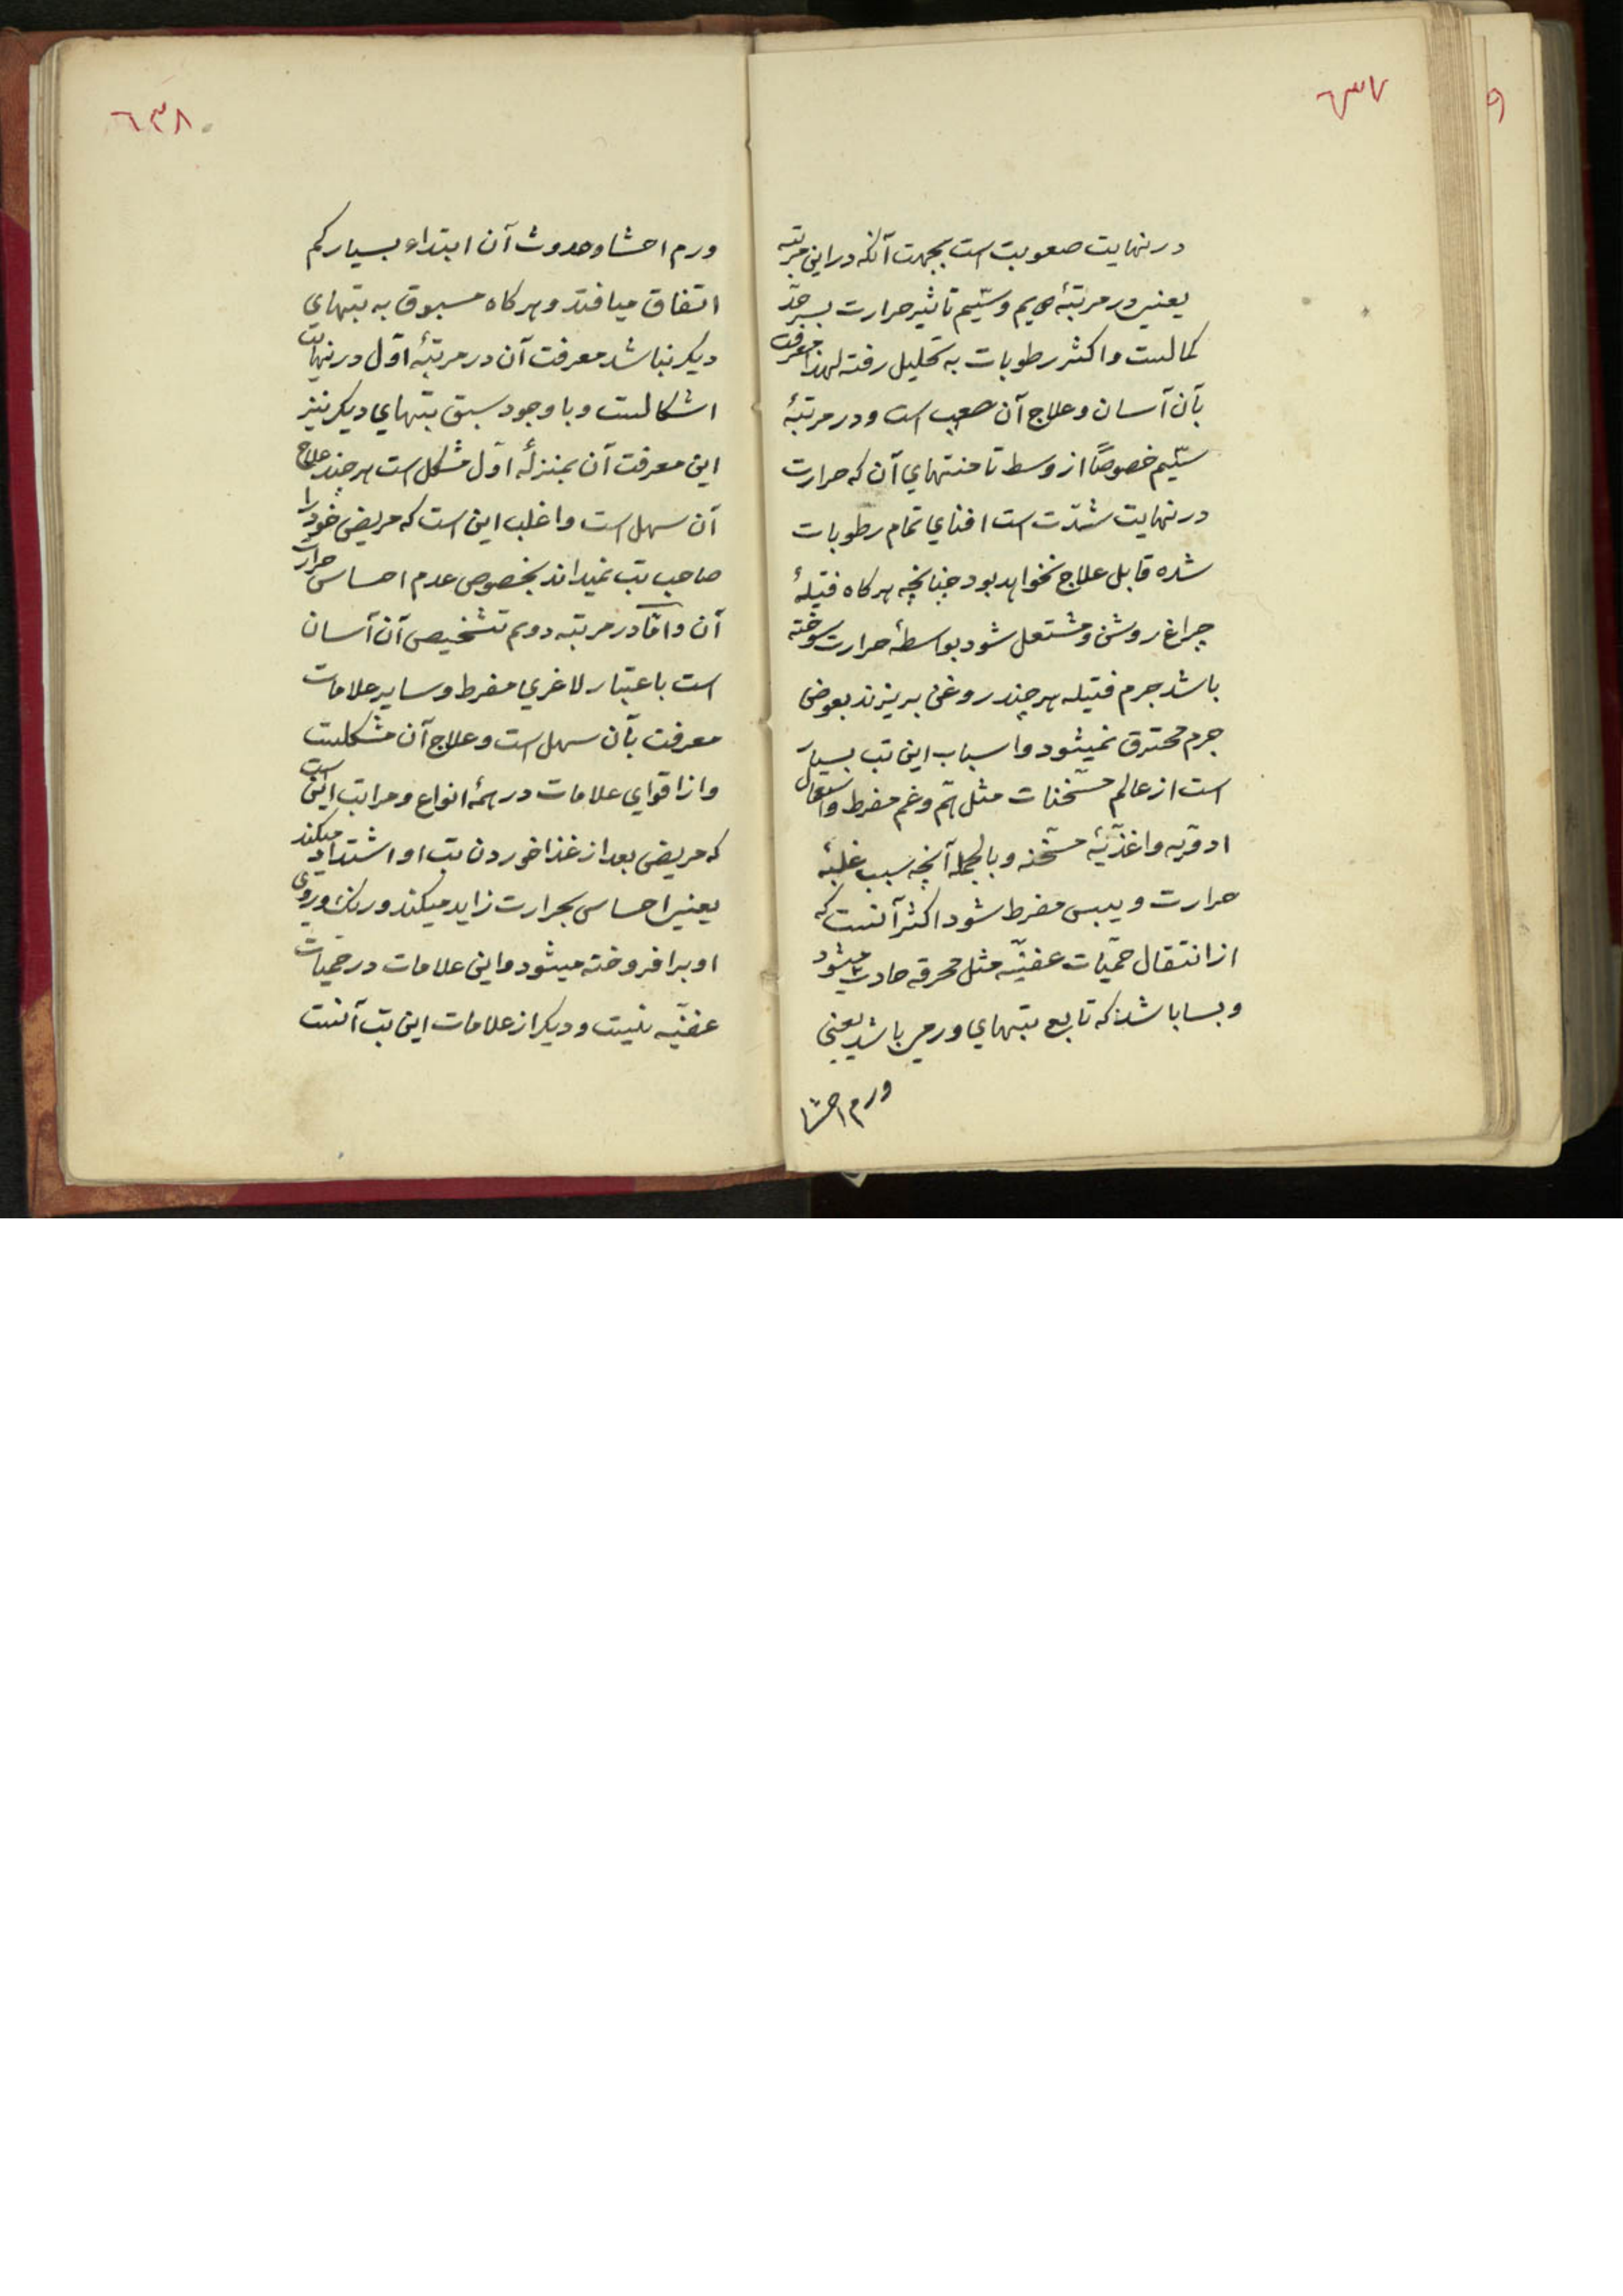 ٦٣٧
در نهایت صعوبت است بجهت آنکه در این مرتبه
یعنی در مرتبهٔ دویم و سیّیم تاثیر حرارت بسرحدّ
کمالست و اکثر رطوبات به تحلیل رفته لهذا معرفت
بآن آسان و علاج آن صعب است و در مرتبهٔ
سیّیم خصوصاً از وسط تا منتهای آن که حرارت
در نهایت شدّت است افنای تمام رطوبات
شده قابل علاج نخواهد بود جنانجه هرکاه فتیلهٔ
جراغ روشن و مشتعل شود بواسطهٔ حرارت سوخته
باشد جرم فتیله هرچند روغن بریزند بعوض
جرم محترق نمیشود و اسباب این تب بسیار
است از عالم مسخّنات مثل همّ و غم مفرط و استعمال
ادویّه و اغذیّهٔ مسخّنه و بالجمله آنچه سبب غلبهٔ
حرارت و یبس مفرط شود اکثر آنست که
از انتقال حمّیات عفنیّه مثل محرقه حادث میشود
و بسا باشد که تابع تبهای ورمی باشد یعنی
ورم احشا
٦٣٨
ورم احشا و حدوث آن ابتداء بسیار کم
اتفاق میافتد و هرکاه مسبوق به تبهای
دیکر نباشد معرفت آن در مرتبهٔ اوّل در نهایت
اشکالست و با وجود سبق تبهای دیکر نیز
این معرفت آن بمنزلهٔ اوّل مشکل است هرچند علاج
آن سهل است و اغلب این است که مریض خود را
صاحب تب نمیداند بخصوص عدم احساس حرارت
آن و امّا در مرتبه دویم تشخیص آن آسان
است باعتبار لاغری مفرط و سایر علامات
معرفت بآن سهل است و علاج آن مشکلست
و از اقوای علامات در همهٔ انواع و مراتب این است
که مریض بعد از غذا خوردن تب او اشتداد میکند
یعنی احساس بحرارت زاید میکند و رنک و روی
او برافروخته میشود و این علامات در حمّیات
عفنیّه نیست و دیکر از علامات این تب آنست